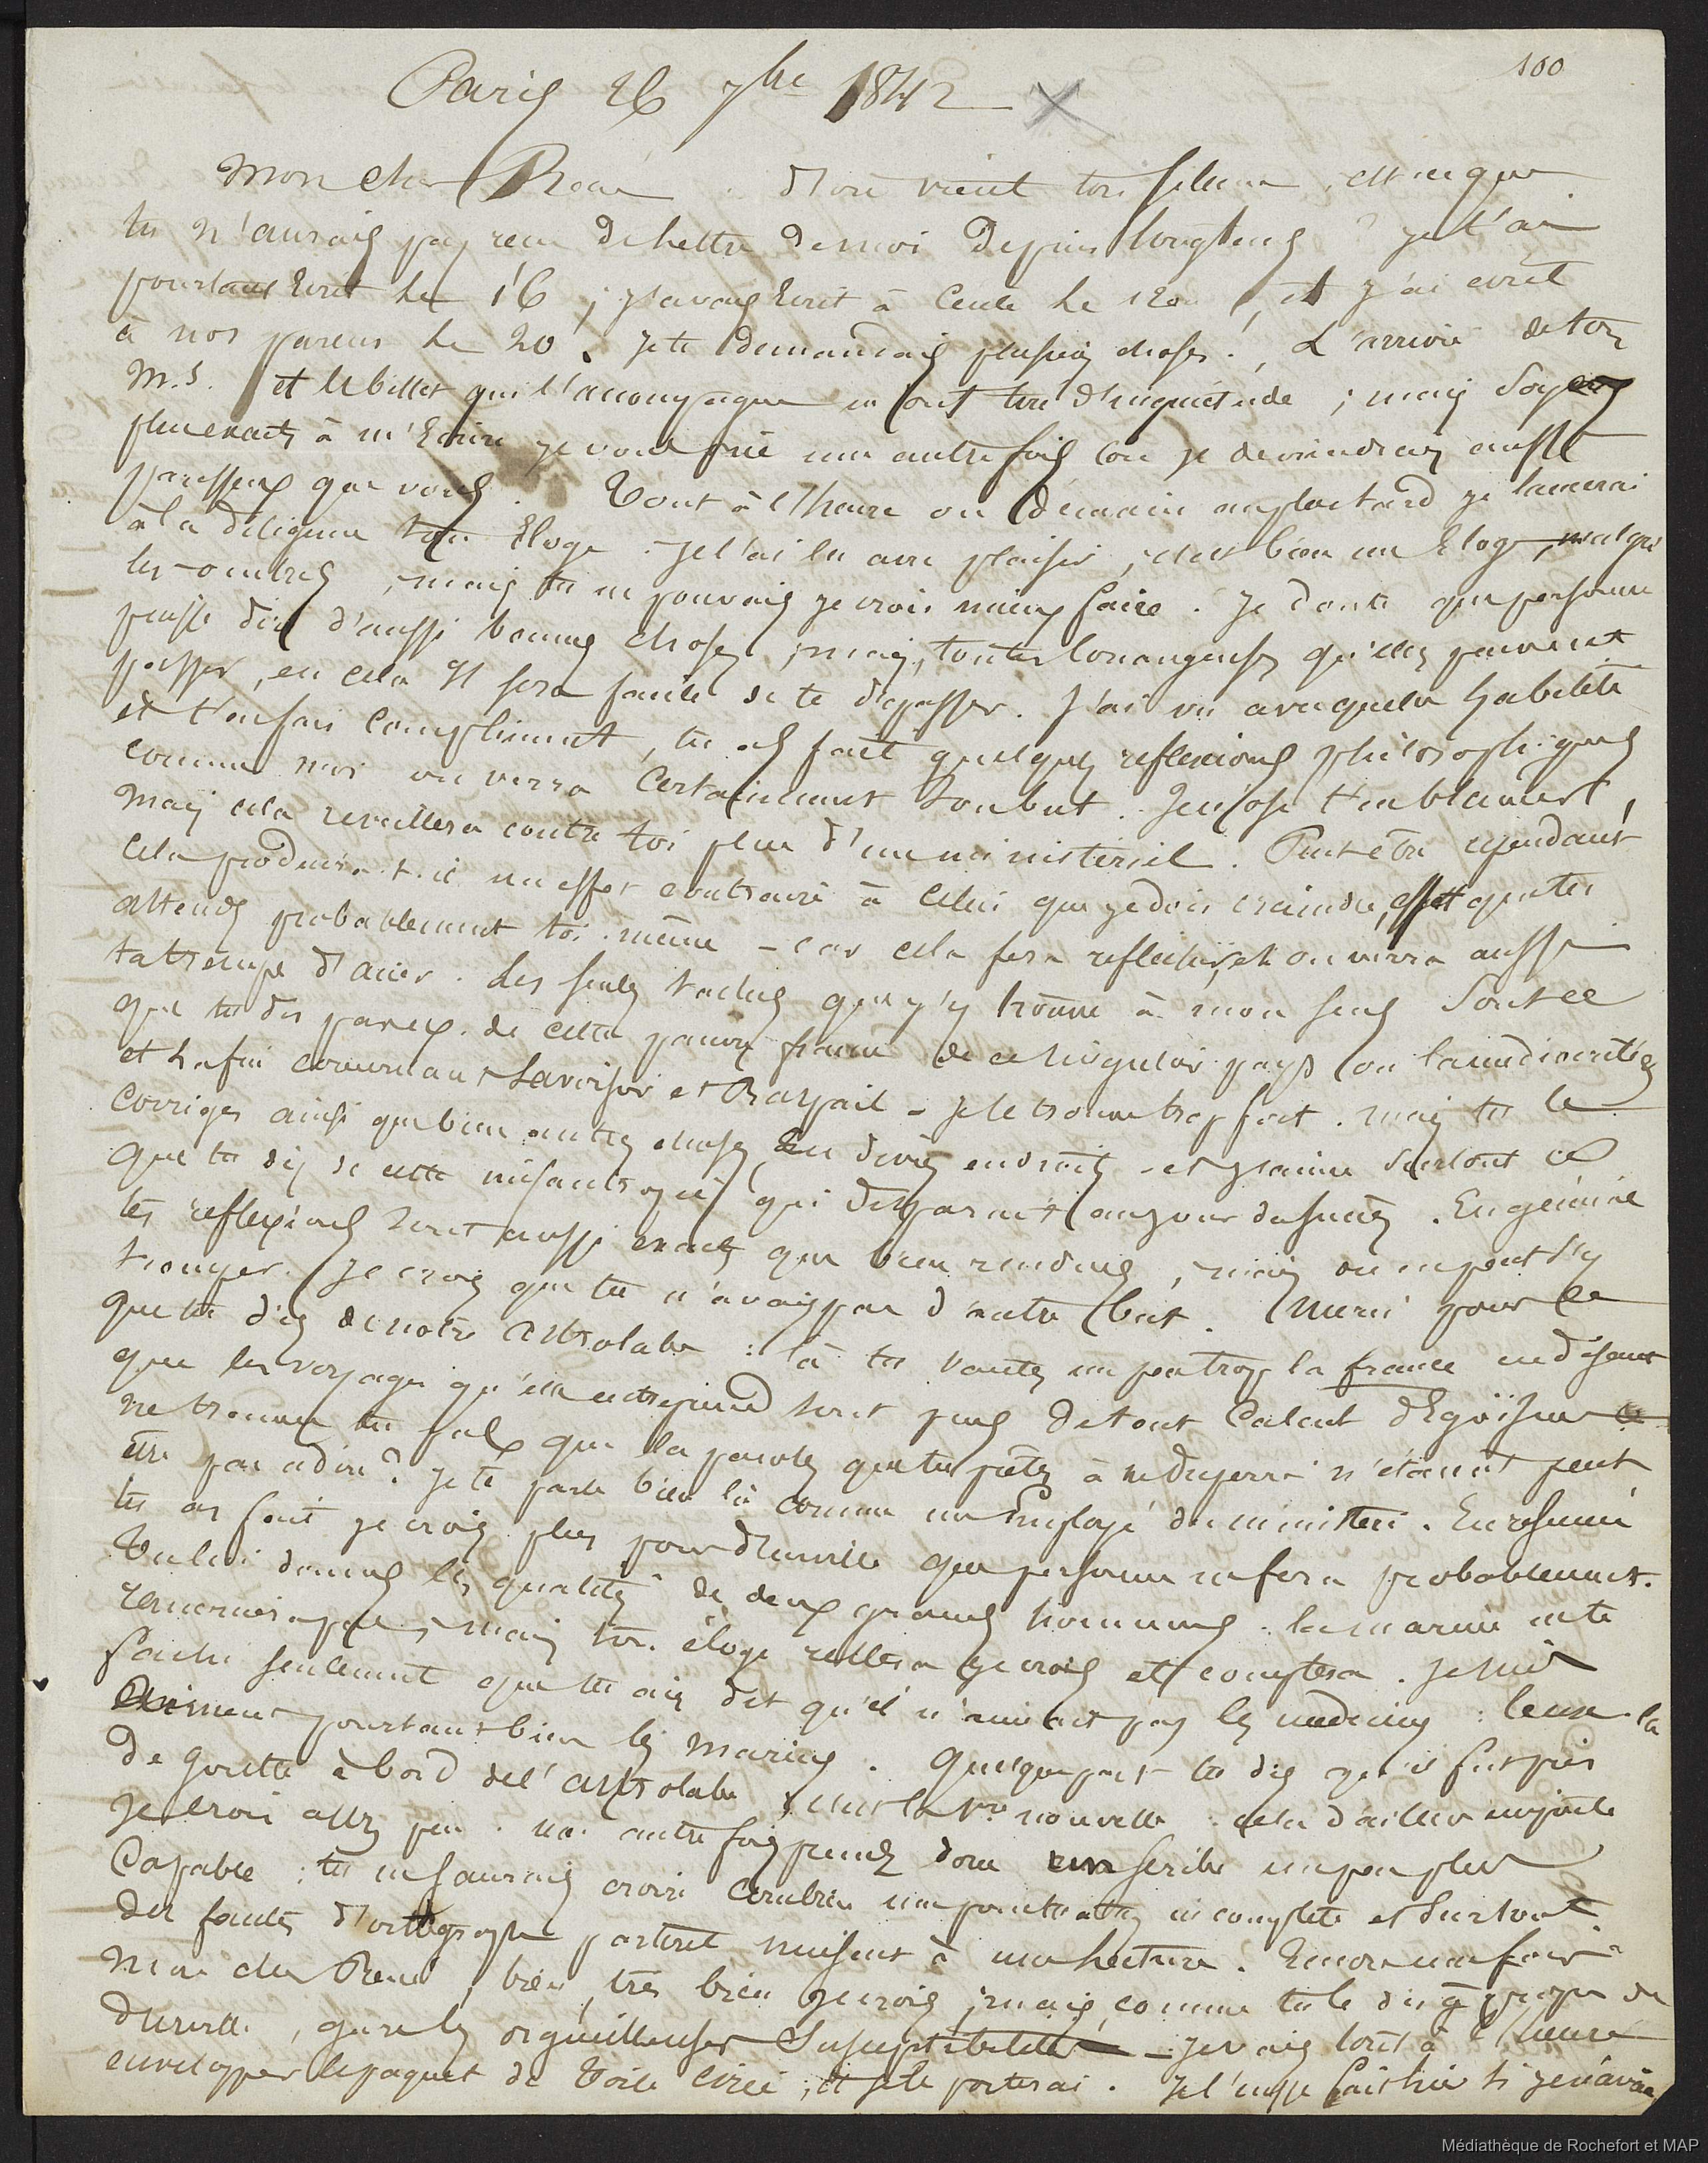 100
Paris 26 7bre 1842
Mon cher René. D'où vient ton silence, est ce que
tu n'aurais pas recu de lettre de moi depuis longtems ? je t'ai
pourtant écrit le 16 ; j'avais écrit à le 12 , et j'ai écrit
à nos parens le 20. Je te demandais plusieurs choses. L'arrivée de ton
M.S. et le billet qui l'accompagne m'ont tiré d'inquiétude ; mais soyez
plus exacts à m'Ecrire je vous prie une autre fois ou je deviendrai aussi
paresseux que vous. Tout à l'heure ou demain au plus tard je lancerai
à la diligence ton Eloge. Je l'ai lu avec plaisir, c'est bien un Eloge, malgré
les ombres, mais tu ne pouvais je crois mieux faire. Je doute que personne
puisse dire d'aussi bonnes choses ; mais, toutes louangeuses qu'elles peuvent
passer, en cela Il sera facile de te dépasser. J'ai vu avec quelle habileté
et t'en fais compliment, tu as fait quelques reflexions philosophiques
comme moi on verra certainement ton but. Je n'ose t'en blamer,
mais cela reveillera contre toi plus d'un ministeriel. Peut être cependant
cela produira-t-il un effet contraire à celui que je dois craindre, effet que tu
attends probablement toi-même - car cela fera reflechir, et on verra aussi
ta trempe d'acier. Les seules taches que j'y trouve à mon sens sont ce
que tu dis par ex. de cette pauvre france de ce singulier pays ou la médiocrité
et la fin concernant Lavoisier et Raspail - je le trouve trop fort. mais tu le
corriges ainsi que bien autres choses en divers endroits - et j'aime surtout ce
que tu dis de cette misantropie qui disparait au jour du succès. En général
tes reflexions sont aussi exactes que bien rendues, mais on ne peut s'y
tromper. Je crois que tu n'avais pas d'autre but. Merci pour ce
que tu dis de notre Astrolabe : là tu vantes un peu trop la france en disant
que les voyages qu'elle entreprend sont purs de tout calcul d'Egoïsme
ne trouves tu pas que les paroles que tu prêtes à m. Duperré n'étaient peut
être pas à dire ? Je te parle bien là comme un Employé du ministère. En résumé
tu as fait je crois plus pour d'Urville que personne ne fera probablement.
Tu lui donnes les qualités de deux grands hommes. La marine ne te
remerciera pas, mais ton éloge restera je crois et comptera. Je suis
faché seulement que tu aies dit qu'il n'aimait pas les médecins : ceux-là
Aiment pourtant bien les marins. Quelque part tu dis qu'il fut pris
de goutte à bord de l'Astrolabe nouvelle : cela d'ailleurs importe
je crois assez peu. Une autre fois prends donc un scribe un peu plus
capable : tu ne saurais croire combien une ponctuation incomplète et surtout
des fautes d'ortographe partout nuisent à une lecture. Encore une fois
Mon cher René, bien, très bien je crois ; mais, comme tu le dis à propos de
d'Urville, gare les orgueilleuses susceptibilités - Je vais tout à l'heure
envelopper le paquet de toile cirée, et je le porterai. Je l'eusse fait hier si je n'avais
Médiathèque de Rochefort et MAP